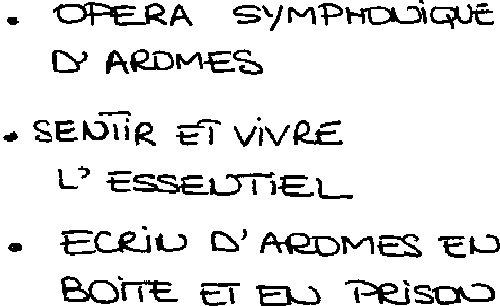 • OPERA SYMPHONiQUE
D' AROMES
• SENTiR ET ViVRE
L' ESSENTiEL
• ECRiN D'AROMES EN
BOiTE ET EN PRiSON